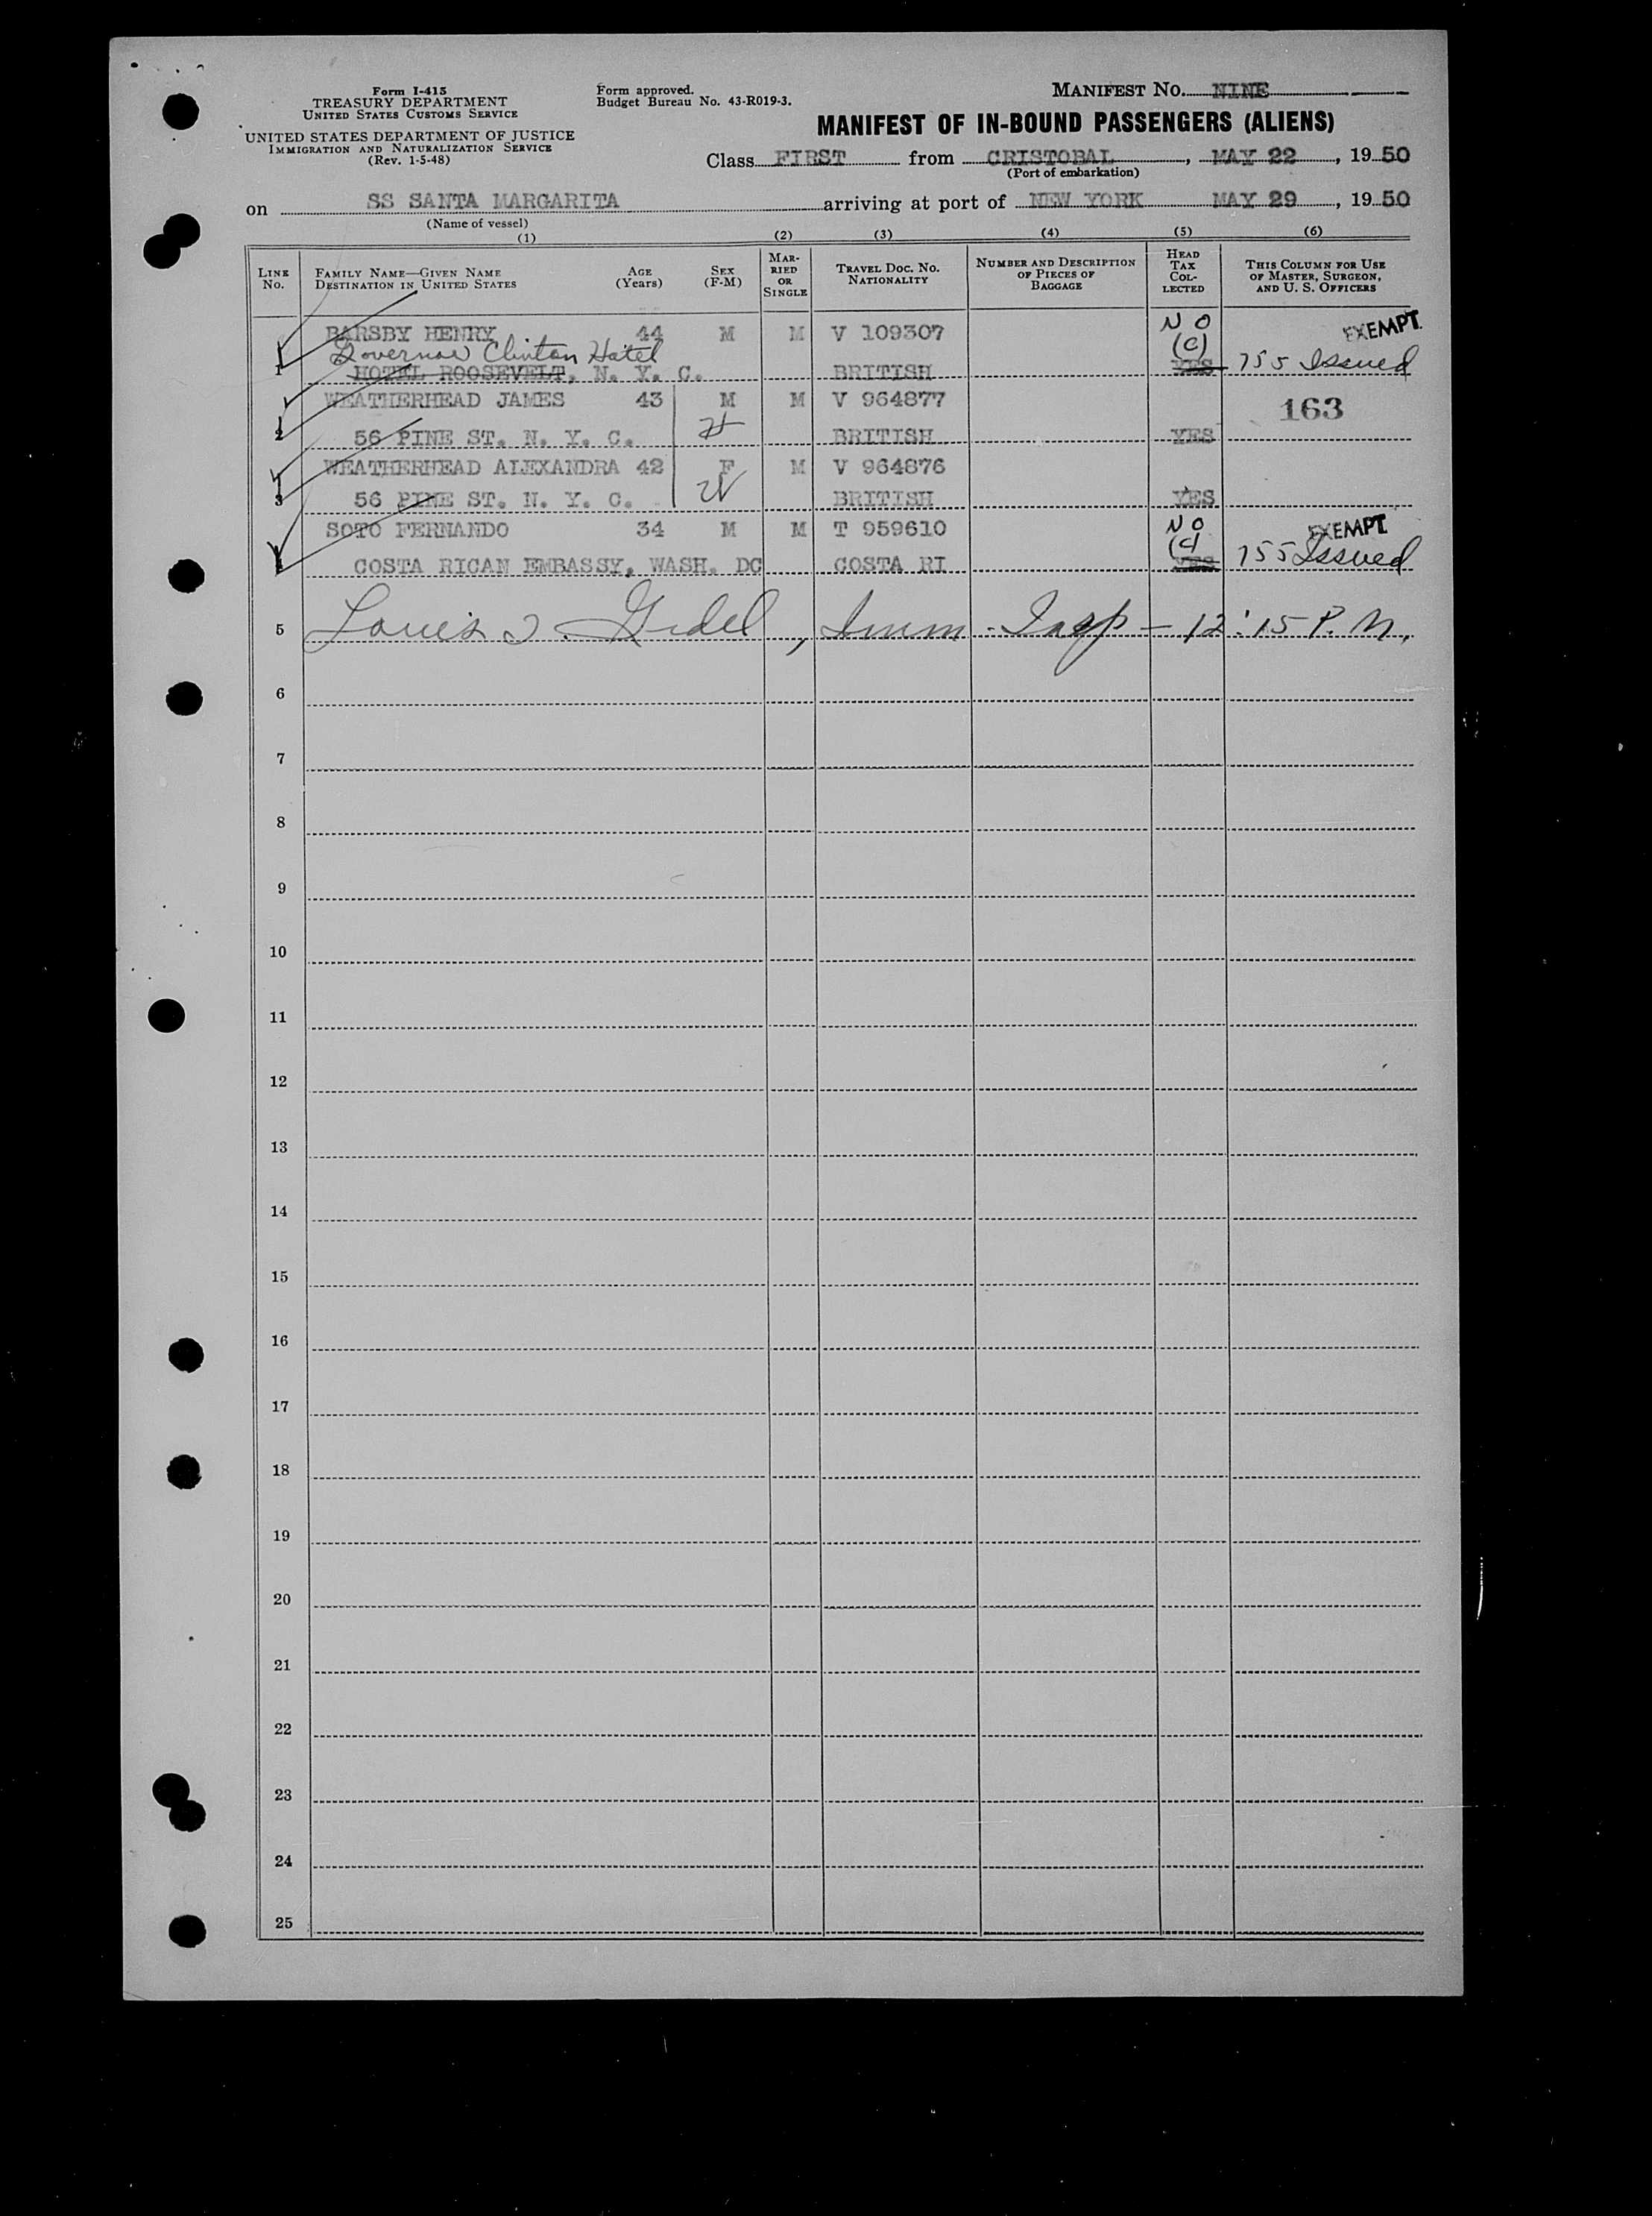 Form I-415
TREASURY DEPARTMENT
UNITED STATES CUSTOMS SERVICE
UNITED STATES DEPARTMENT OF JUSTICE
IMMIGRATION AND NATURALIZATION SERVICE
(Rev. 1-5-48)
Form approved.
Budget Bureau No. 43-R019-3.
MANIFEST NO. NINE
MANIFEST OF IN-BOUND PASSENGERS (ALIENS)
Class FIRST from CRISTOBAL, MAY 22, 1950
(Port of embarkation)
on SS SANTA MARGARITA arriving at port of NEW YORK MAY 29, 1950
(Name of vessel)
(1) (2) (3) (4) (5) (6)
LINE NO. FAMILY NAME—GIVEN NAME DESTINATION IN UNITED STATES AGE (Years) SEX (F-M) MARRIED OR SINGLE TRAVEL DOC. NO. NATIONALITY NUMBER AND DESCRIPTION OF PIECES OF BAGGAGE HEAD TAX COLLECTED THIS COLUMN FOR USE OF MASTER, SURGEON, AND U. S. OFFICERS
BARSBY HENRY 44 M M V 109307 NO (C) EXEMPT
Governor Clinton Hotel
1 HOTEL ROOSEVELT, N. Y. C. BRITISH YES 755 Issued
WEATHERHEAD JAMES 43 M M V 964877 163
2 56 PINE ST. N. Y. C. BRITISH YES
WEATHERHEAD ALEXANDRA 42 F M V 964876
3 56 PINE ST. N. Y. C. BRITISH YES
SOTO FERNANDO 34 M M T 959610 NO (C) EXEMPT
4 COSTA RICAN EMBASSY, WASH. DC COSTA RI YES 755 Issued
5 Louis, Imm. Insp — 12:15 P. M.
6
7
8
9
10
11
12
13
14
15
16
17
18
19
20
21
22
23
24
25